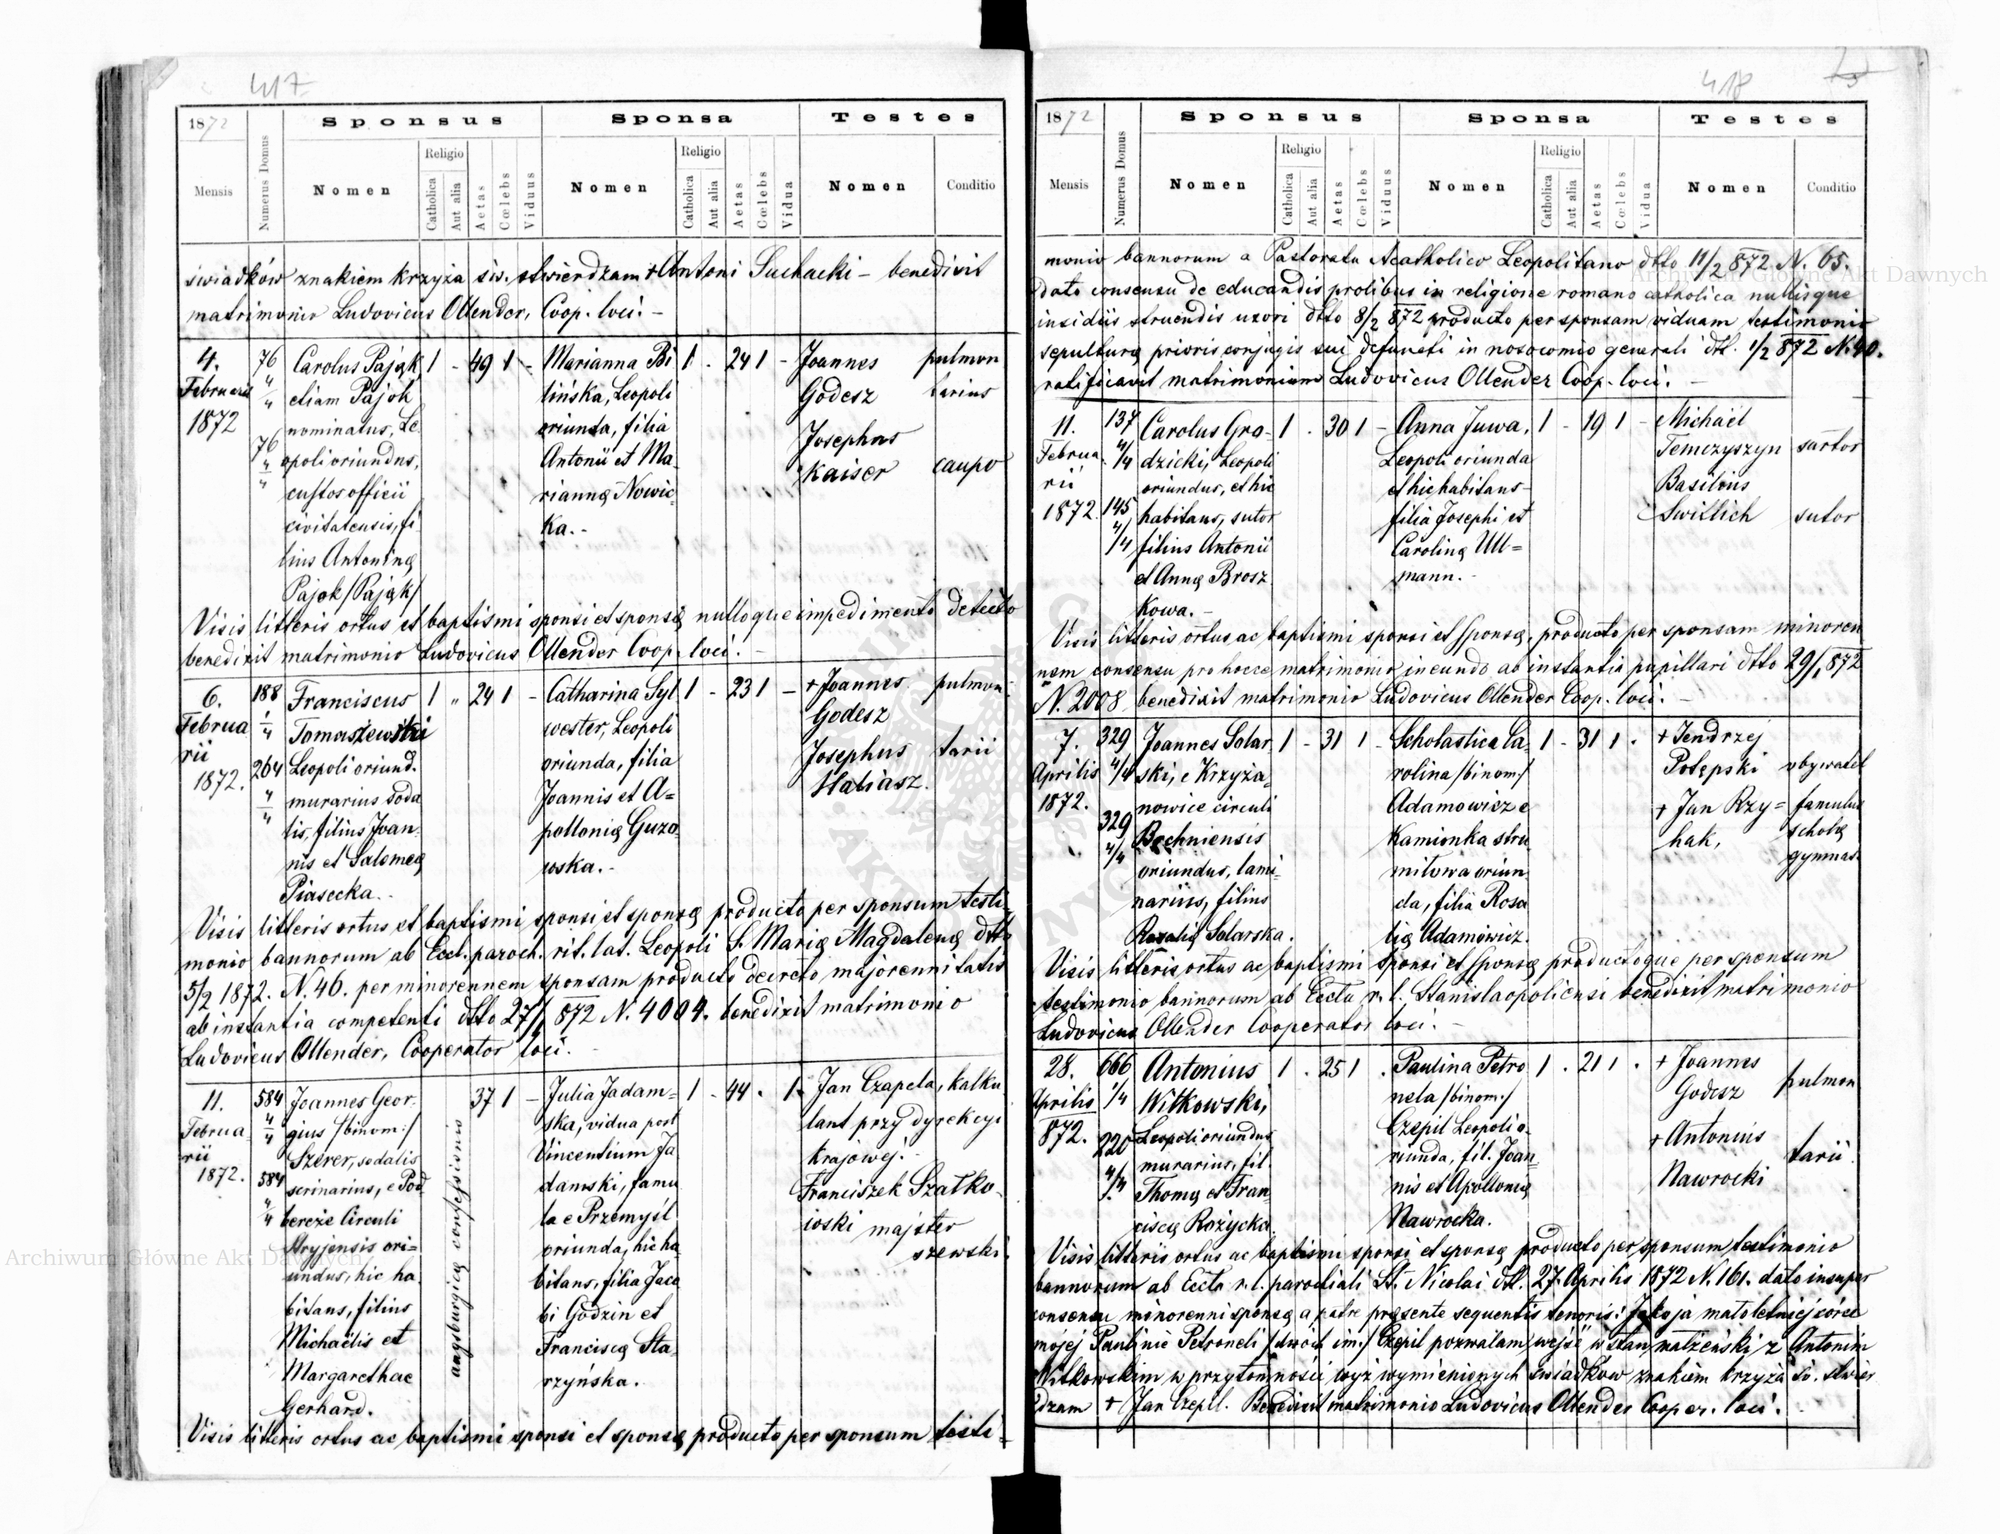 417
1872
Sponsus
Sponsa
Testes
Mensis
Numerus Domus
Nomen
Religio
Catholica
Aut alia
Aetas
Cœlebs
Viduus
Nomen
Religio
Catholica
Aut alia
Aetas
Cœlebs
Vidua
Nomen
Conditio
świadków znakiem krzyża św. stwierdzam + Antoni Suchacki – benedixit
matrimonio Ludovicus Ollender, Coop. loci. –
4.
Februarii
1872
76
76
Carolus Pająk
etiam Pajok
nominatus, Le
opoli oriundus,
custos officii
civitatensis, fi
lius Antoninę
Pajok /Pająk/
1 - 49 1 -
Marianna Bi
lińska, Leopoli
oriunda, filia
Antonii et Ma-
riannę Nowic-
ka. -
1 - 24 1 -
Joannes
Godesz
Josephus
Kaiser
pulmen
tarius
caupo
Visis litteris ortus et baptismi sponsi et sponsę nulloque impedimento detecto
benedixit matrimonio Ludovicus Ollender Coop. loci. -
6.
Februa
rii
1872.
188
264
Franciscus
Tomaszewski
Leopoli oriund.
murarius soda
lis, filius Joan-
nis et Salomeę
Piasecka. -
1 " 24 1 -
Catharina Syl
wester, Leopoli
oriunda, filia
Joannis et A=
pollonię Guzo-
wska. -
1 - 23 1 -
+ Joannes
Godesz
Josephus
Haliasz.
pulmen-
tarii
Visis litteris ortus et baptismi sponsi et sponsę producto per sponsum testi-
monio bannorum ab Eccl. paroch. rit. lat. Leopoli S. Marię Magdalenę dtto
5/2 1872. N. 46. per minorennem sponsam producto decreto majorennitatis
ab instantia competenti dtto 27/1 872 N. 4004. benedixit matrimonio
Ludovicus Ollender, Cooperator loci. -
11.
Februa
rii
1872.
584
4/4
584
4/4
Joannes Geor-
gius /binom:/
Szerer, sodalis
scrinarius, e Pod
bereże Circuli
Stryjensis ori=
undus, hic ha
bitans, filius
Michaëlis et
Margarethae
Gerhard.
augsburgicę confessionis
37 1 -
Julia Jadam=
ska, vidua post
Vincentium Ja
damski, famu
la e Przemyśl
oriunda, hic ha
bitans, filia Jaco
bi Godzin et
Franciscę Sta
rzyńska. -
1 - 44 - 1.
Jan Czapela, kalku
lant przy dyrekcyi
krajowej. -
Franciszek Szatko-
wski majster
szewski.
Visis litteris ortus ac baptismi sponsi et sponsę producto per sponsum testi-
418
1872
Sponsus
Sponsa
Testes
Mensis
Numerus Domus
Nomen
Religio
Catholica
Aut alia
Aetas
Cœlebs
Viduus
Nomen
Religio
Catholica
Aut alia
Aetas
Cœlebs
Vidua
Nomen
Conditio
monio bannorum a Pastoratu Acatholico Leopolitano dtto 11/2 872 N. 65.
dato consensu de educandis prolibus in religione romano catholica nullisque
insidiis struendis uxori dtto 8/2 872 producto per sponsam viduam testimonio
sepulturę prioris conjugis sui defuncti in nosocomio generali dtt. 1/2 872 N. 40.
ratificavit matrimonium Ludovicus Ollender Coop. loci. -
11.
Februa
rii
1872.
137
4/4
145
4/4
Carolus Gro-
dzicki, Leopoli
oriundus, et hic
habitans, sutor
filius Antonii
et Annę Brosz
kowa. -
1 - 30 1 -
Anna Juwa,
Leopoli oriunda
et hic habitans -
filia Josephi et
Carolinę Ull=
mann. -
1 - 19 1 -
Michaël
Temczyszyn
Basilius
Swillich
sartor
sutor
Visis litteris ortus ac baptismi sponsi et sponsę, producto per sponsam minoren
nem consensu pro hocce matrimonio ineundo ab instantia pupillari dtto 29/1 872
N. 2008, benedixit matrimonio Ludovicus Ollender Coop. loci. -
7.
Aprilis
1872.
329
4/4
329
4/4
Joannes Solar
ski, e Krzyża
nowice circuli
Bochniensis
oriundus, lami-
narius, filius
Rozalię Solarska.
1 - 31 1 -
Scholastica Ca-
rolina /binom:/
Adamowicz e
Kamionka stru
miłowa oriun
da, filia Rosa
lię Adamowicz.
1 - 31 1 .
+ Jendrzej
Potępski
+ Jan Rzy=
hak,
obywatel
famulus
scholę
gymnas
Visis litteris ortus ac baptismi sponsi et sponsę productoque per sponsum
testimonio bannorum ab Eccla r. l. Stanislaopoliensi benedixit matrimonio
Ludovicus Ollender Cooperator loci. -
28.
Aprilis
872.
666
1/4
220
4/4
Antonius
Witkowski,
Leopoli oriundus
murarius, fil.
Thomę et Fran-
ciscę Rożycka.
1 . 25 1 .
Paulina Petro
nela /binom:/
Czepil Leopoli o-
riunda, fil. Joan-
nis et Apollonię
Nawrocka.
1 . 21 1 .
+ Joannes
Godesz
+ Antonius
Nawrocki
pulmen
tarii
Visis litteris ortus ac baptismi sponsi et sponsę producto per sponsum testimonio
bannorum ab Eccla r. l. parochiali St. Nicolai dtt. 27. Aprilis 1872 N. 161. dato insuper
consensu minorenni sponsę a patre pręsente sequentis tenoris: Jako ja małoletniej córce
mojej Paulinie Petroneli /dwóch im:/ Czepil pozwalam wejść w stan małżeński z Antonim
Witkowskim w przytomności wyż wymienionych świadków znakiem krzyża św. stwier
dzam + Jan Czepil. Benedixit matrimonio Ludovicus Ollender Cooper. loci.
Archiwum Główne Akt Dawnych
Archiwum Główne Akt Dawnych